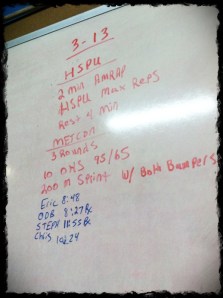 3-13
HSPU
2 min AMRAP
HSPU Max Reps
Rest 4 min
METCON
3 Rounds
10 OHS 95/65
200 m Sprint w/ Both Bumpers
Eric 8:48
ODB 8:27 Rx
STEPH 11:55 Rx
Chris